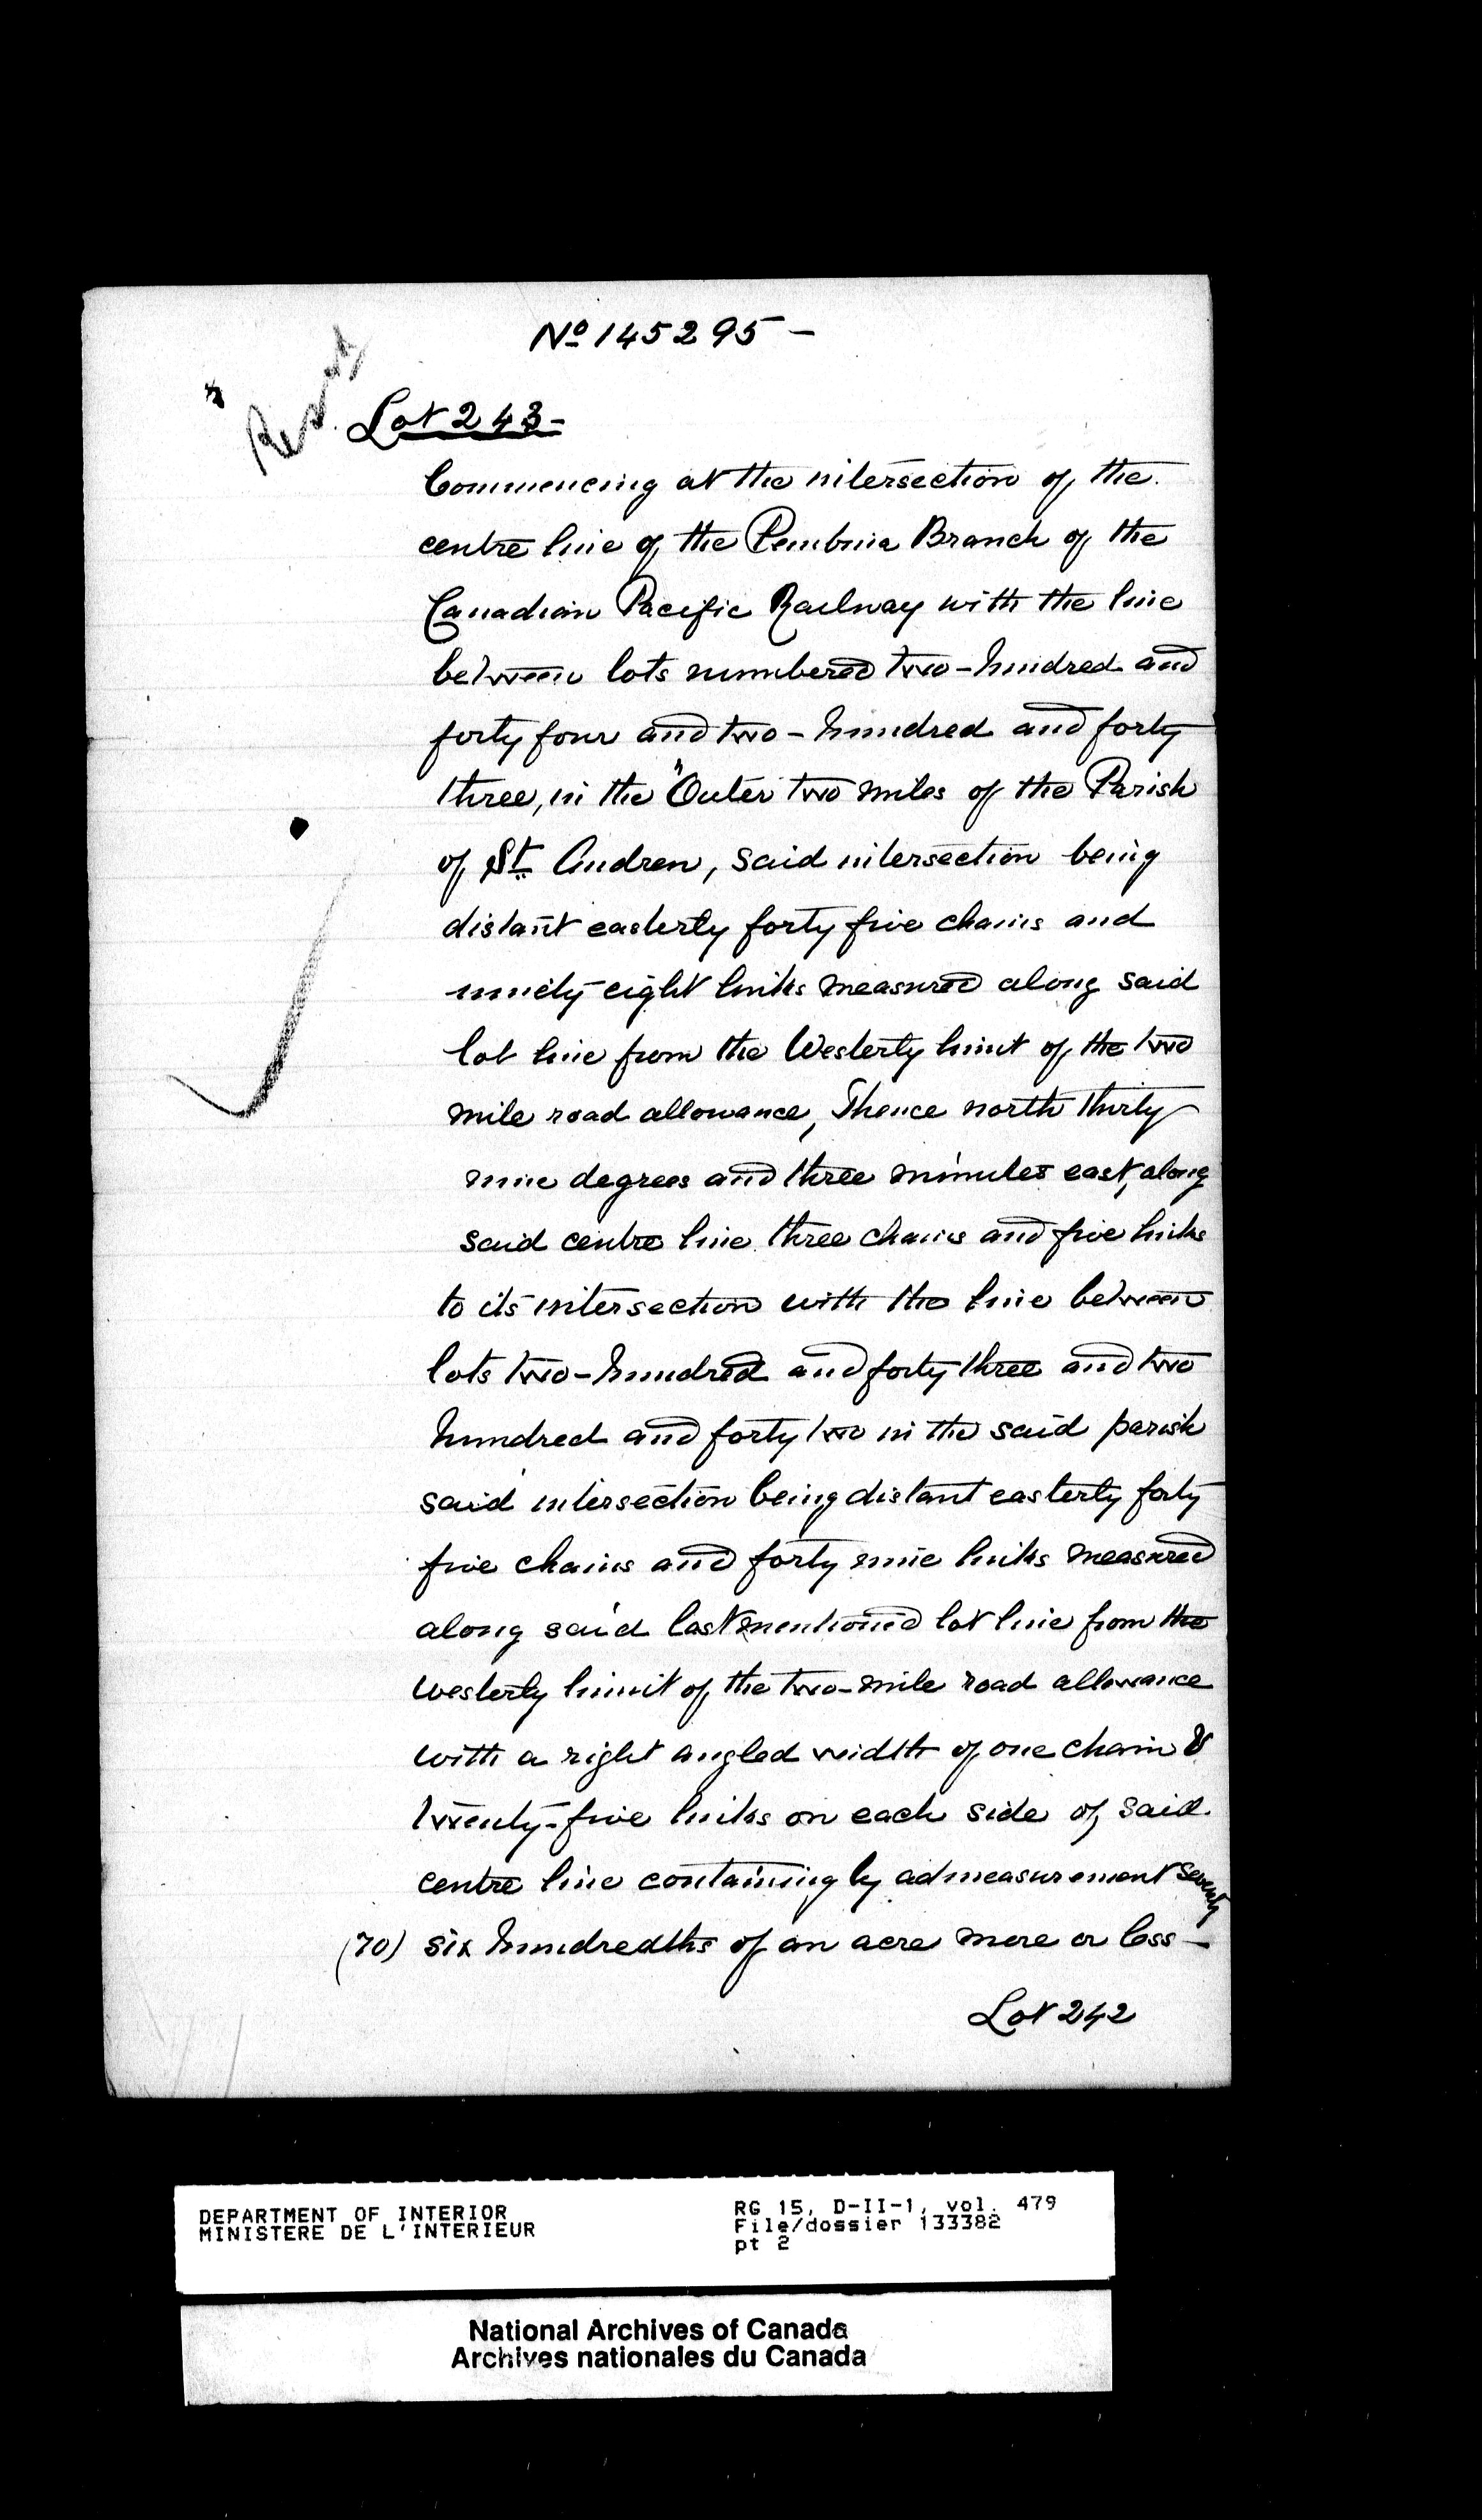 No 145295 -
Lot 243 -
Commencing at the intersection of the
centre line of the Pembina Branch of the
Canadian Pacific Railway with the line
between lots numbered two-hundred and
forty four and two-hundred and forty
three, in the "Outer two miles of the Parish
of St. Andrew, said intersection being
distant easterly forty five chains and
ninety eight links measured along said
lot line from the Westerly limit of the two
mile road allowance, Thence north thirty
nine degrees and three minutes east, along
said centre line three chains and five links
to its intersection with the line between
lots two-hundred and forty three and two
hundred and forty two in the said parish
said intersection being distant easterly forty
five chains and forty nine links measured
along said last mentioned lot line from the
westerly limit of the two-mile road allowance
with a right angled width of one chain &
twenty-five links on each side of said
centre line containing by admeasurement seventy
(70) six hundredths of an acre more or less -
Lot 242
DEPARTMENT OF INTERIOR
MINISTERE DE L'INTERIEUR
RG 15, D-II-1, vol. 479
File/dossier 133382
pt 2
National Archives of Canada
Archives nationales du Canada